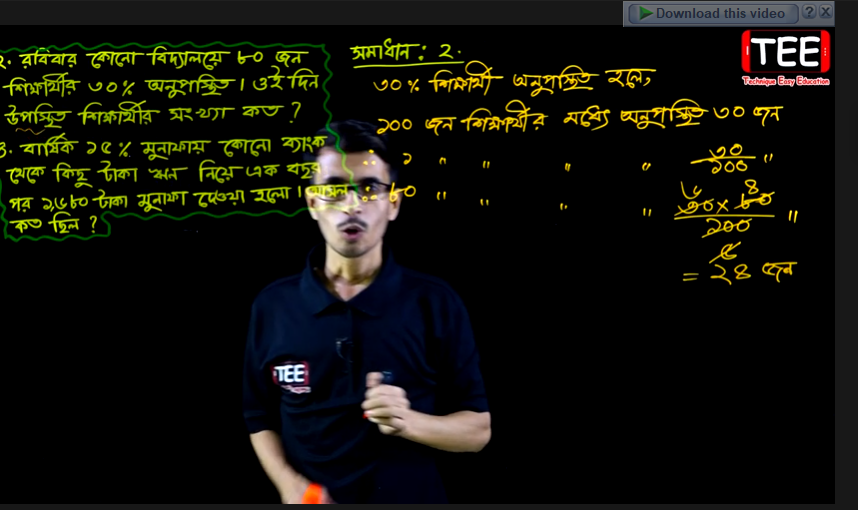 Download this video
TEE
Technique Easy Education
২. রবিবার কোনো বিদ্যালয়ে ৮০ জন
শিক্ষার্থীর ৩০% অনুপস্থিত। ওই দিন
উপস্থিত শিক্ষার্থীর সংখ্যা কত?
৩. বার্ষিক ১৫% মুনাফায় কোনো ব্যাংক
থেকে কিছু টাকা ঋন নিয়ে এক বছর
পর ১,৬৮০ টাকা মুনাফা দেওয়া হলো। আসল
কত ছিল?
সমাধান: ২.
৩০% শিক্ষার্থী অনুপস্থিত হলে,
১০০ জন শিক্ষার্থীর মধ্যে অনুপস্থিত ৩০ জন
∴ ১ " " " " ৩০/১০০ "
∴ ৮০ " " " " ৩০ × ৮০/১০০ "
৬ ৪
৫
= ২৪ জন
TEE